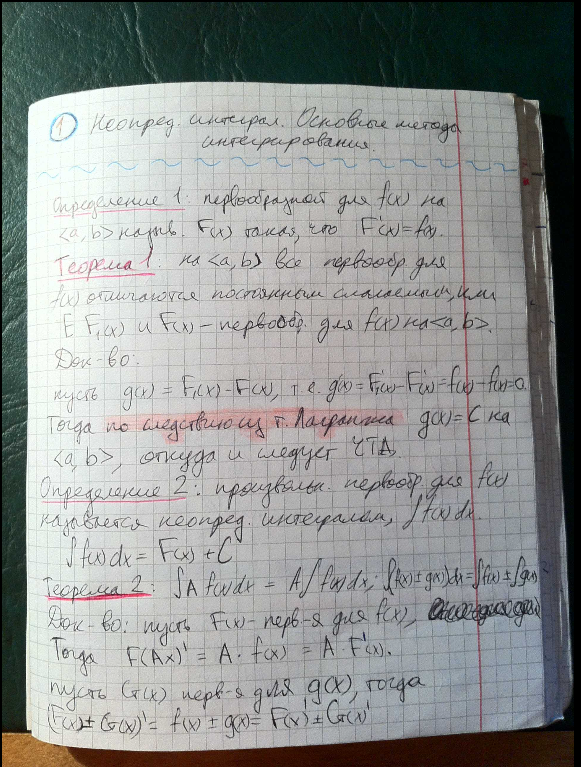 1 Неопред. интеграл. Основные метода
интегрирования.
Определение 1: первообразной для f(x) на
<a, b> назыв. F(x) такая, что F'(x)=f(x).
Теорема 1: на <a, b> все первообр для
f(x) отличаются постоянным слагаемым, или
Е F₁(x) и F(x) – первообр. для f(x) на <a, b>.
Док-во:
пусть g(x) = F₁(x)-F(x), т.е. g'(x)=F₁'(x)-F'(x)=f(x)-f(x)=0.
Тогда по следствию из т. Лагранжа g(x)=C на
<a, b>, откуда и следует ЧТД.
Определение 2: произвольн. первообр. для f(x)
называется неопред. интегралом, ∫f(x)dx.
∫f(x)dx = F(x)+C
Теорема 2: ∫A f(x)dx = A∫f(x)dx; ∫(f(x)±g(x))dx=∫f(x)±∫g(x)
Док-во: пусть F(x)- перв-я для f(x),
Тогда F(Ax)' = A · f(x) = A · F'(x).
пусть G(x) перв-я для g(x), тогда
(F(x)±G(x))' = f(x) ± g(x) = F(x)' ± G(x)'